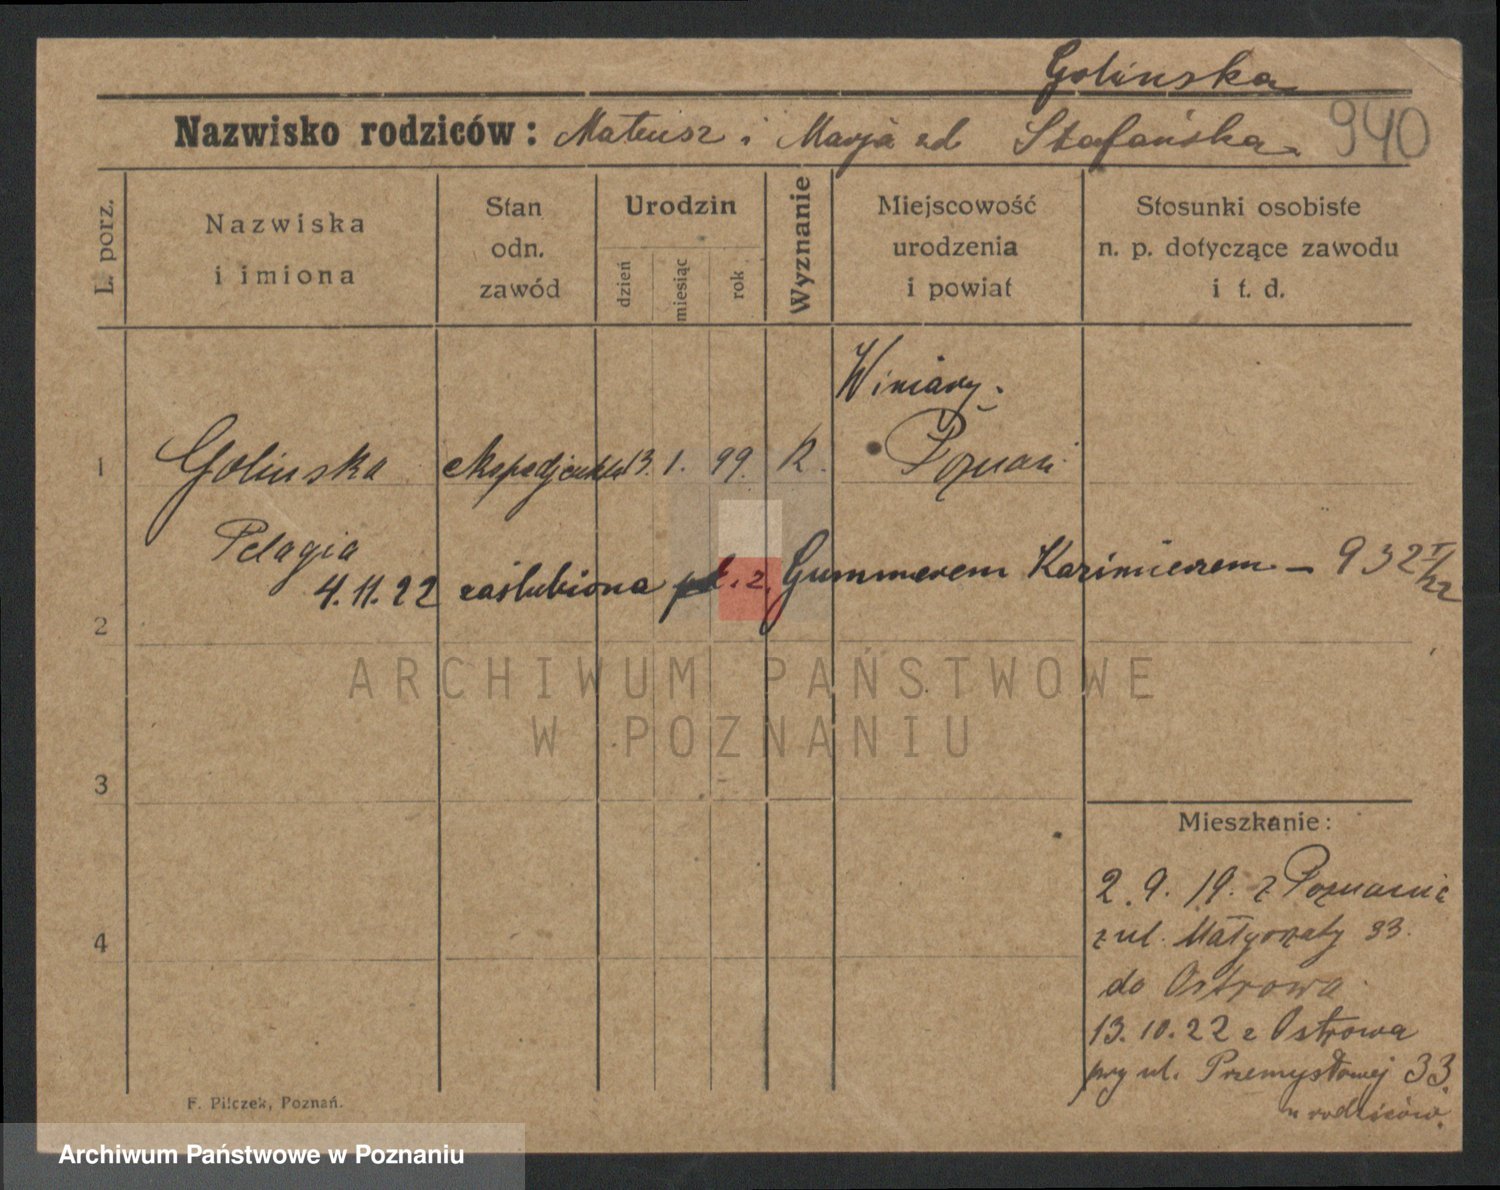 Golinska
Nazwisko rodziców: Mateusz i Marja zd Stafańska 940
L. porz.
Nazwiska
i imiona
Stan
odn.
zawód
Urodzin
dzień
miesiąc
rok
Wyznanie
Miejscowość
urodzenia
i powiat
Stosunki osobiste
n. p. dotyczące zawodu
i t. d.
Winiary.
1 Golinska ekspedjentka 13. 1. 99. R. Poznań
Pelagia
4.11.22 zaślubiona z Gummerem Kazimierzem – 932 I/22
2
ARCHIWUM PAŃSTWOWE
W POZNANIU
3
Mieszkanie:
2.9.19. z Poznania
4
z ul. Małgorzaty 33.
do Ostrowa
13.10.22 z Ostrowa
przy ul. Przemysłowej 33.
u rodziców.
F. Pilczek, Poznań.
Archiwum Państwowe w Poznaniu